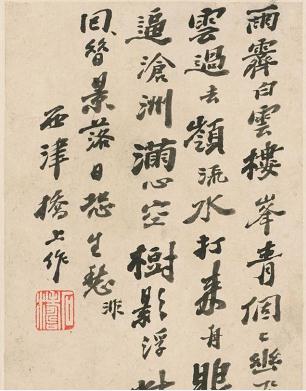 雨霽白雲樓峯青個々幽
雲過去嶺流水打來舟眼
逼滄洲滿心空樹影浮
景落日恐生愁非
津橋上作